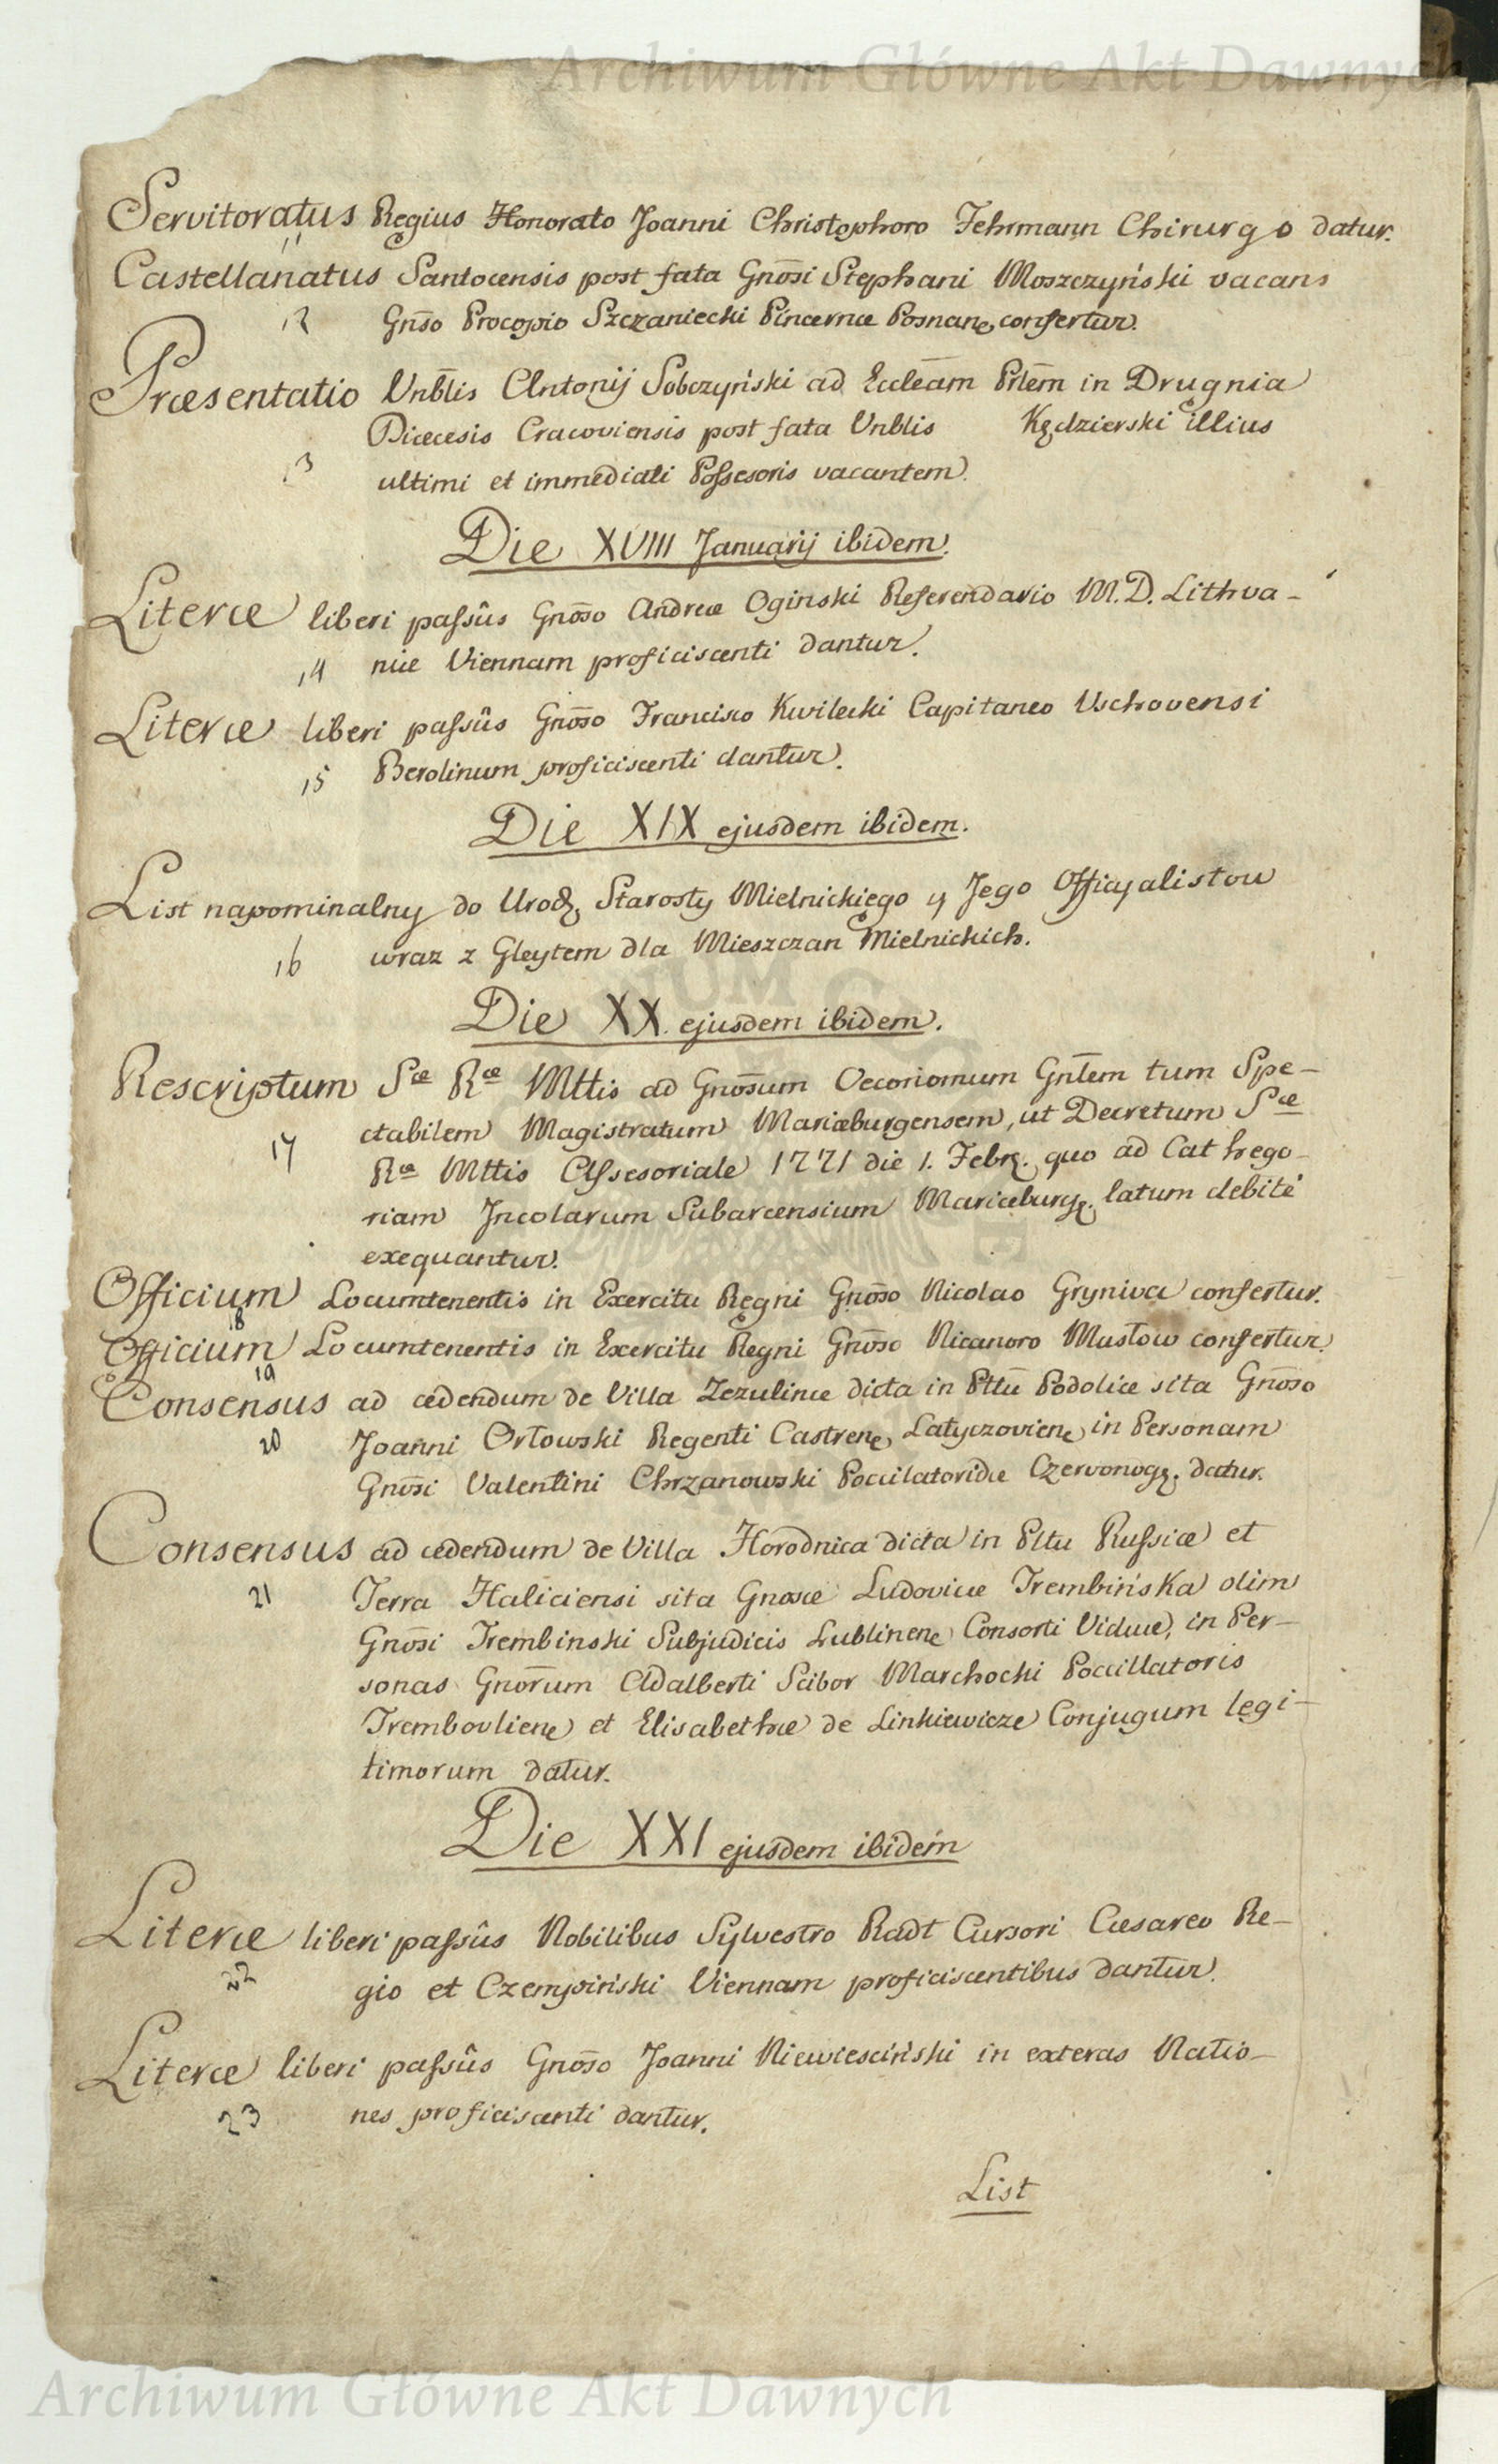 Archiwum Główne Akt Dawnych
Servitoratus Regius Honorato Joanni Christophoro Fehrmann Chirurgo datur.
11
Castellanatus Santocensis post fata Gnōsi Stephani Moszczyński vacans
12 Gnōso Procopio Szczaniecki Pincernæ Posnane, confertur.
Præsentatio Vnblis Antonij Sobczyński ad Eccleām Prlēm in Drugnia
Diæcesis Cracoviensis post fata Vnblis Kędzierski illius
13 ultimi et immediati Possesoris vacantem.
Die XVIII Januarij ibidem.
Literæ liberi passûs Gnōso Andreæ Oginski Referendario M. D. Lithva-
14 niæ Viennam proficiscenti dantur.
Literæ liberi passûs Gnōso Francisco Kwilecki Capitaneo Vschovensi
15 Berolinum proficiscenti dantur.
Die XIX ejusdem ibidem.
List napominalny do Urodz, Starosty Mielnickiego y Jego Officyalistow
16 wraz z Gleytem dla Mieszczan Mielnickich.
Die XX. ejusdem ibidem.
Rescriptum Sæ Ræ Mttis ad Gnōsum Oeconomum Gnlēm tum Spe-
ctabilem Magistratum Mariæburgensem, ut Decretum Sæ
17 Ræ Mttis Assesoriale 1771 die 1. Febr. quo ad Cathego-
riam Incolarum Subarcensium Mariæburg. latum debitè
exequantur.
Officium Locumtenentis in Exercitu Regni Gnōso Nicolao Gryniva confertur.
18
Officium Locumtenentis in Exercitu Regni Gnōso Nicanoro Musłow confertur.
19
Consensus ad cedendum de Villa Zezulince dicta in Pttū Podoliæ sita Gnōso
20 Joanni Orłowski Regenti Castrene, Latyczoviene, in Personam
Gnōsi Valentini Chrzanowski Pocillatoridæ Czervonog. datur.
Consensus ad cedendum de Villa Horodnica dicta in Plttu Russiæ et
21 Terra Haliciensi sita Gnosæ Ludovicæ Trembińska olim
Gnōsi Trembinski Subjudicis Lublinene, Consorti Viduæ, in Per-
sonas Gnōrum Adalberti Scibor Marchocki Poccillatoris
Trembovliene, et Elisabethæ de Linkiewicze Conjugum legi-
timorum datur.
Die XXI ejusdem ibidem
Literæ liberi passûs Nobilibus Sylvestro Radt Cursori Cæsareo Re-
22 gio et Czempiński Viennam proficiscentibus dantur.
Literæ liberi passûs Gnōso Joanni Niewiesciński in exteras Natio-
23 nes proficiscenti dantur.
List
Archiwum Główne Akt Dawnych